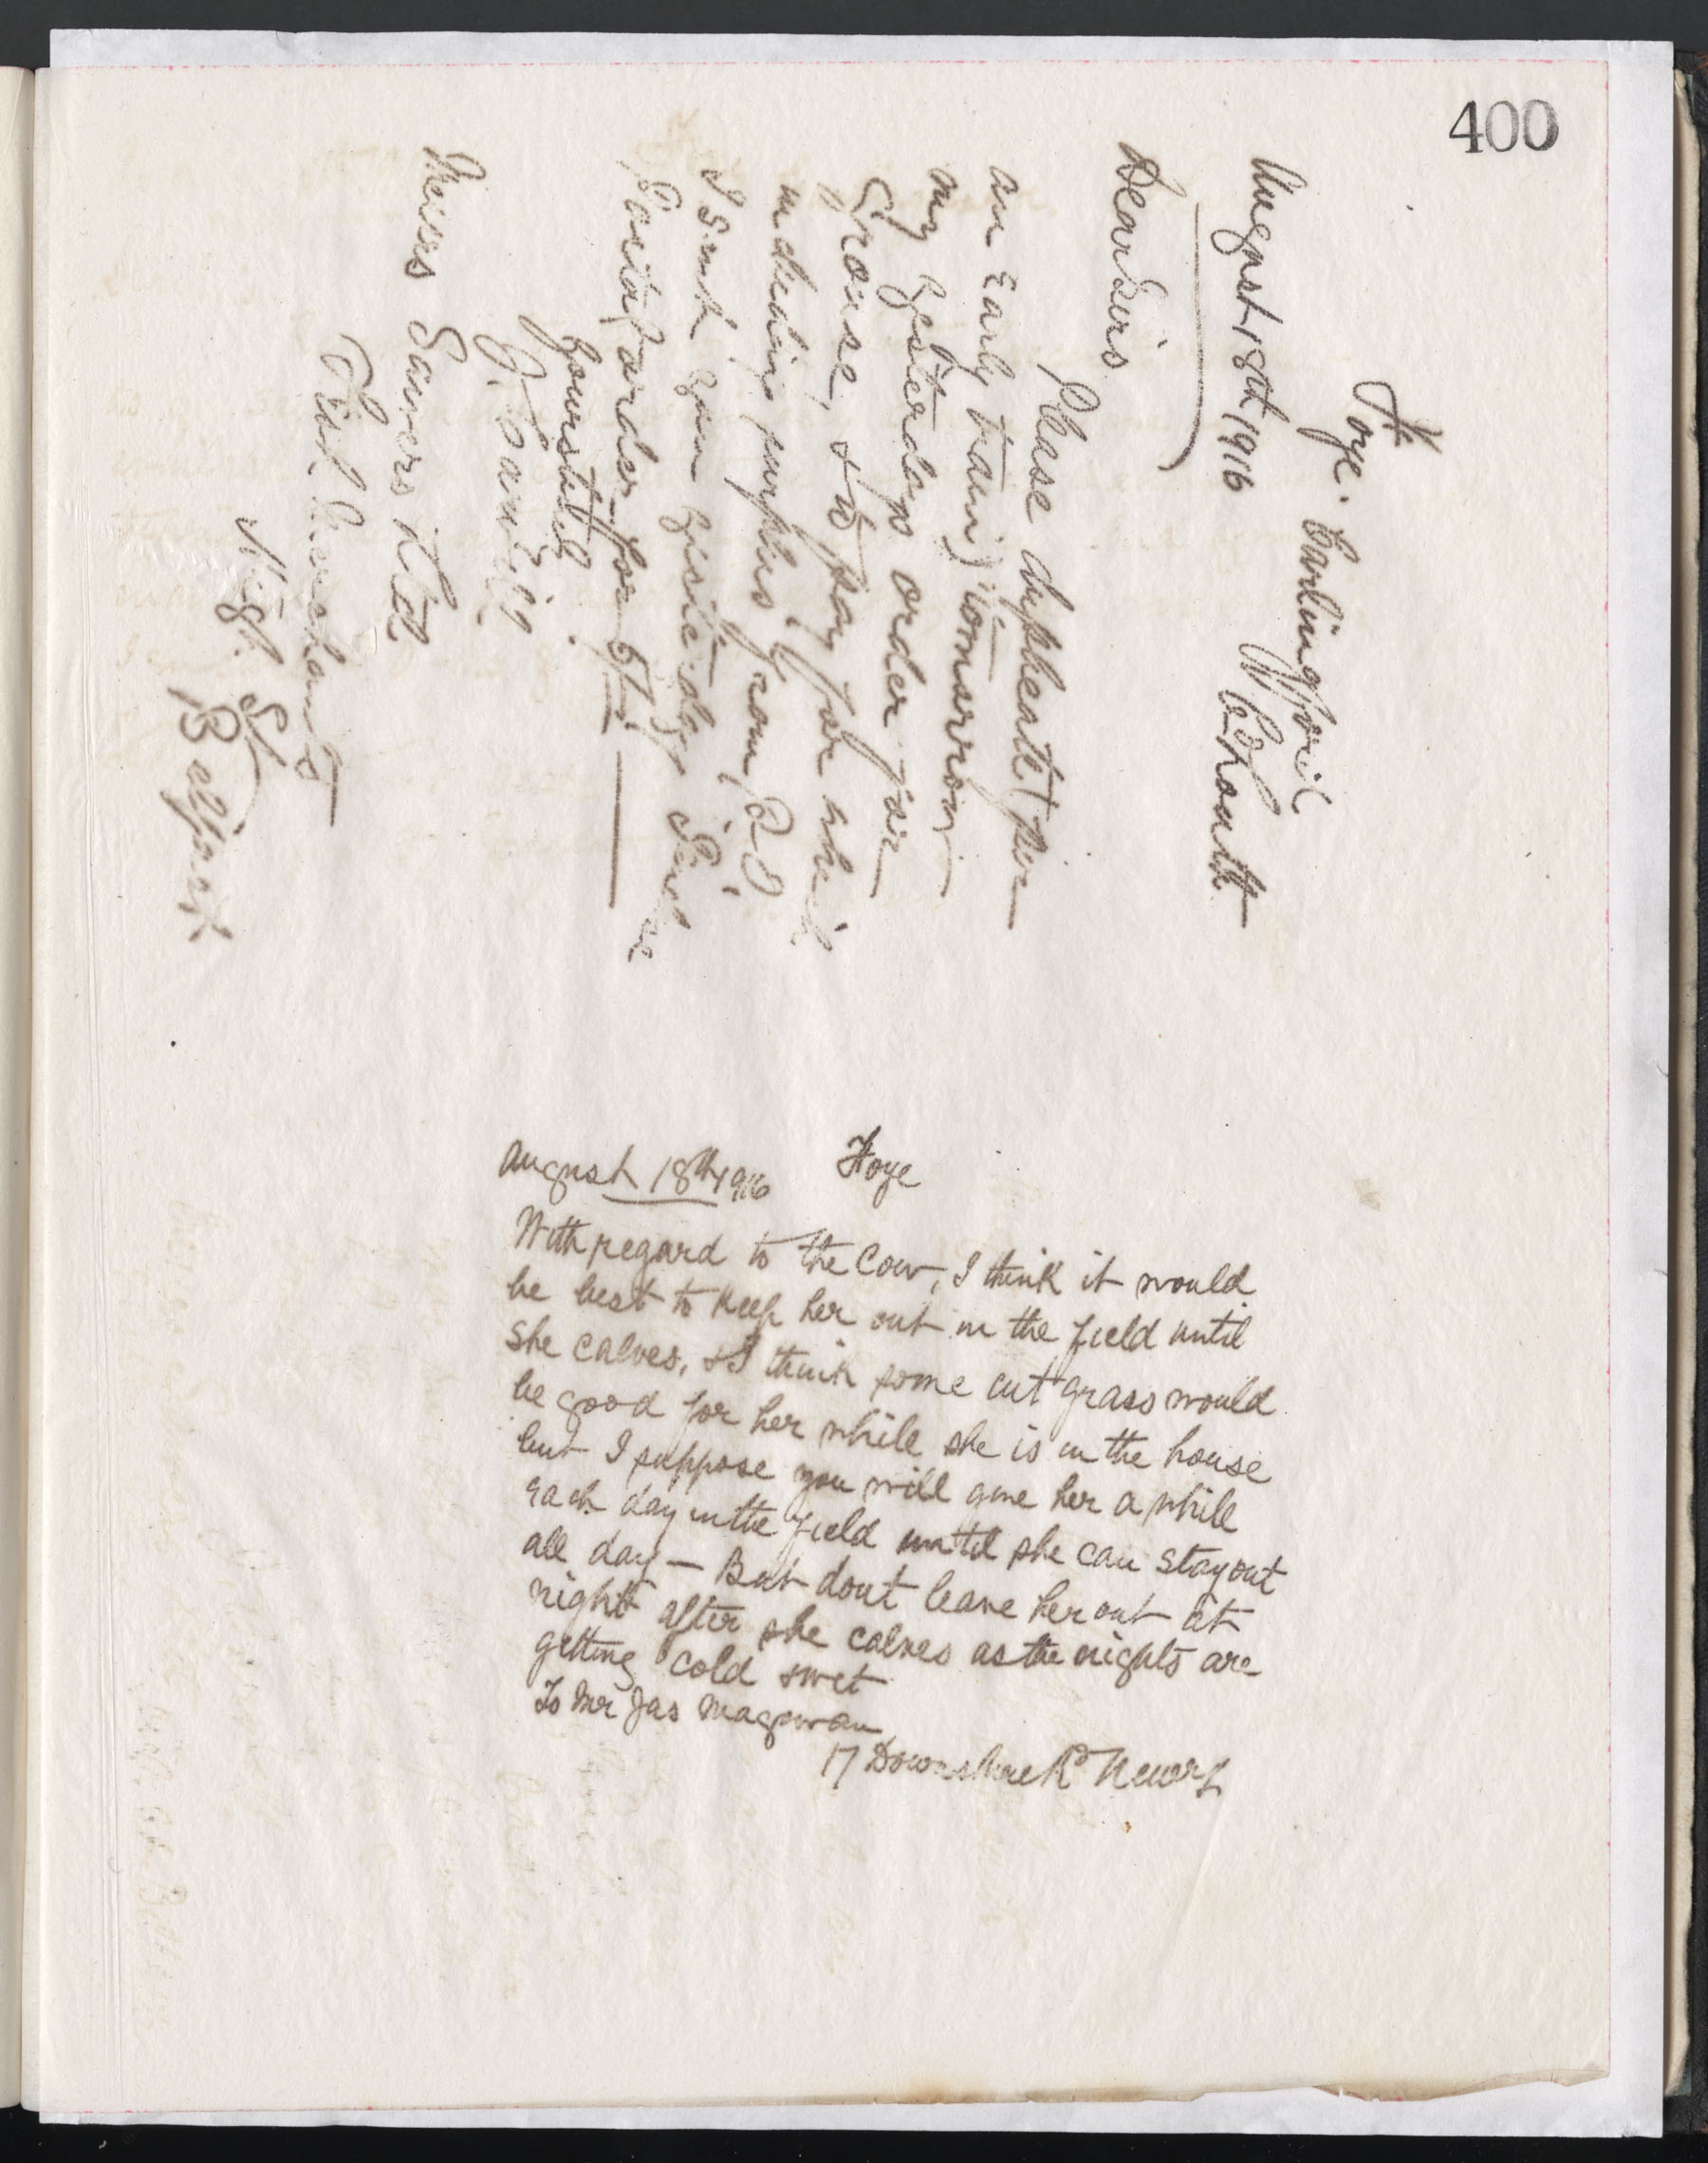 400
Foye. Carlingford
Co Louth
August 18th 1916
Dear Sirs
Please duplicate (per
an Early train) tomorrow
my yesterdays order for
Grouse, & to pay for which
including surplus from, 20/-
I sent you yesterday,
Postal order for 5/-
Yourstruly
Messrs Sawers Ltd
Fish Merchants
High St
Belfast
August 18th 1916 Foye
With regard to the Cow, I think it would
be best to Keep her out in the field until
she calves, & I think some cut grass would
be good for her while she is in the house
but I suppose you will give her a while
each day in the field until she can stay out
all day — But dont leave her out at
night after she calves as the nights are
getting cold & wet
To Mr Jas Magowan
17 Downshire Rd Newry